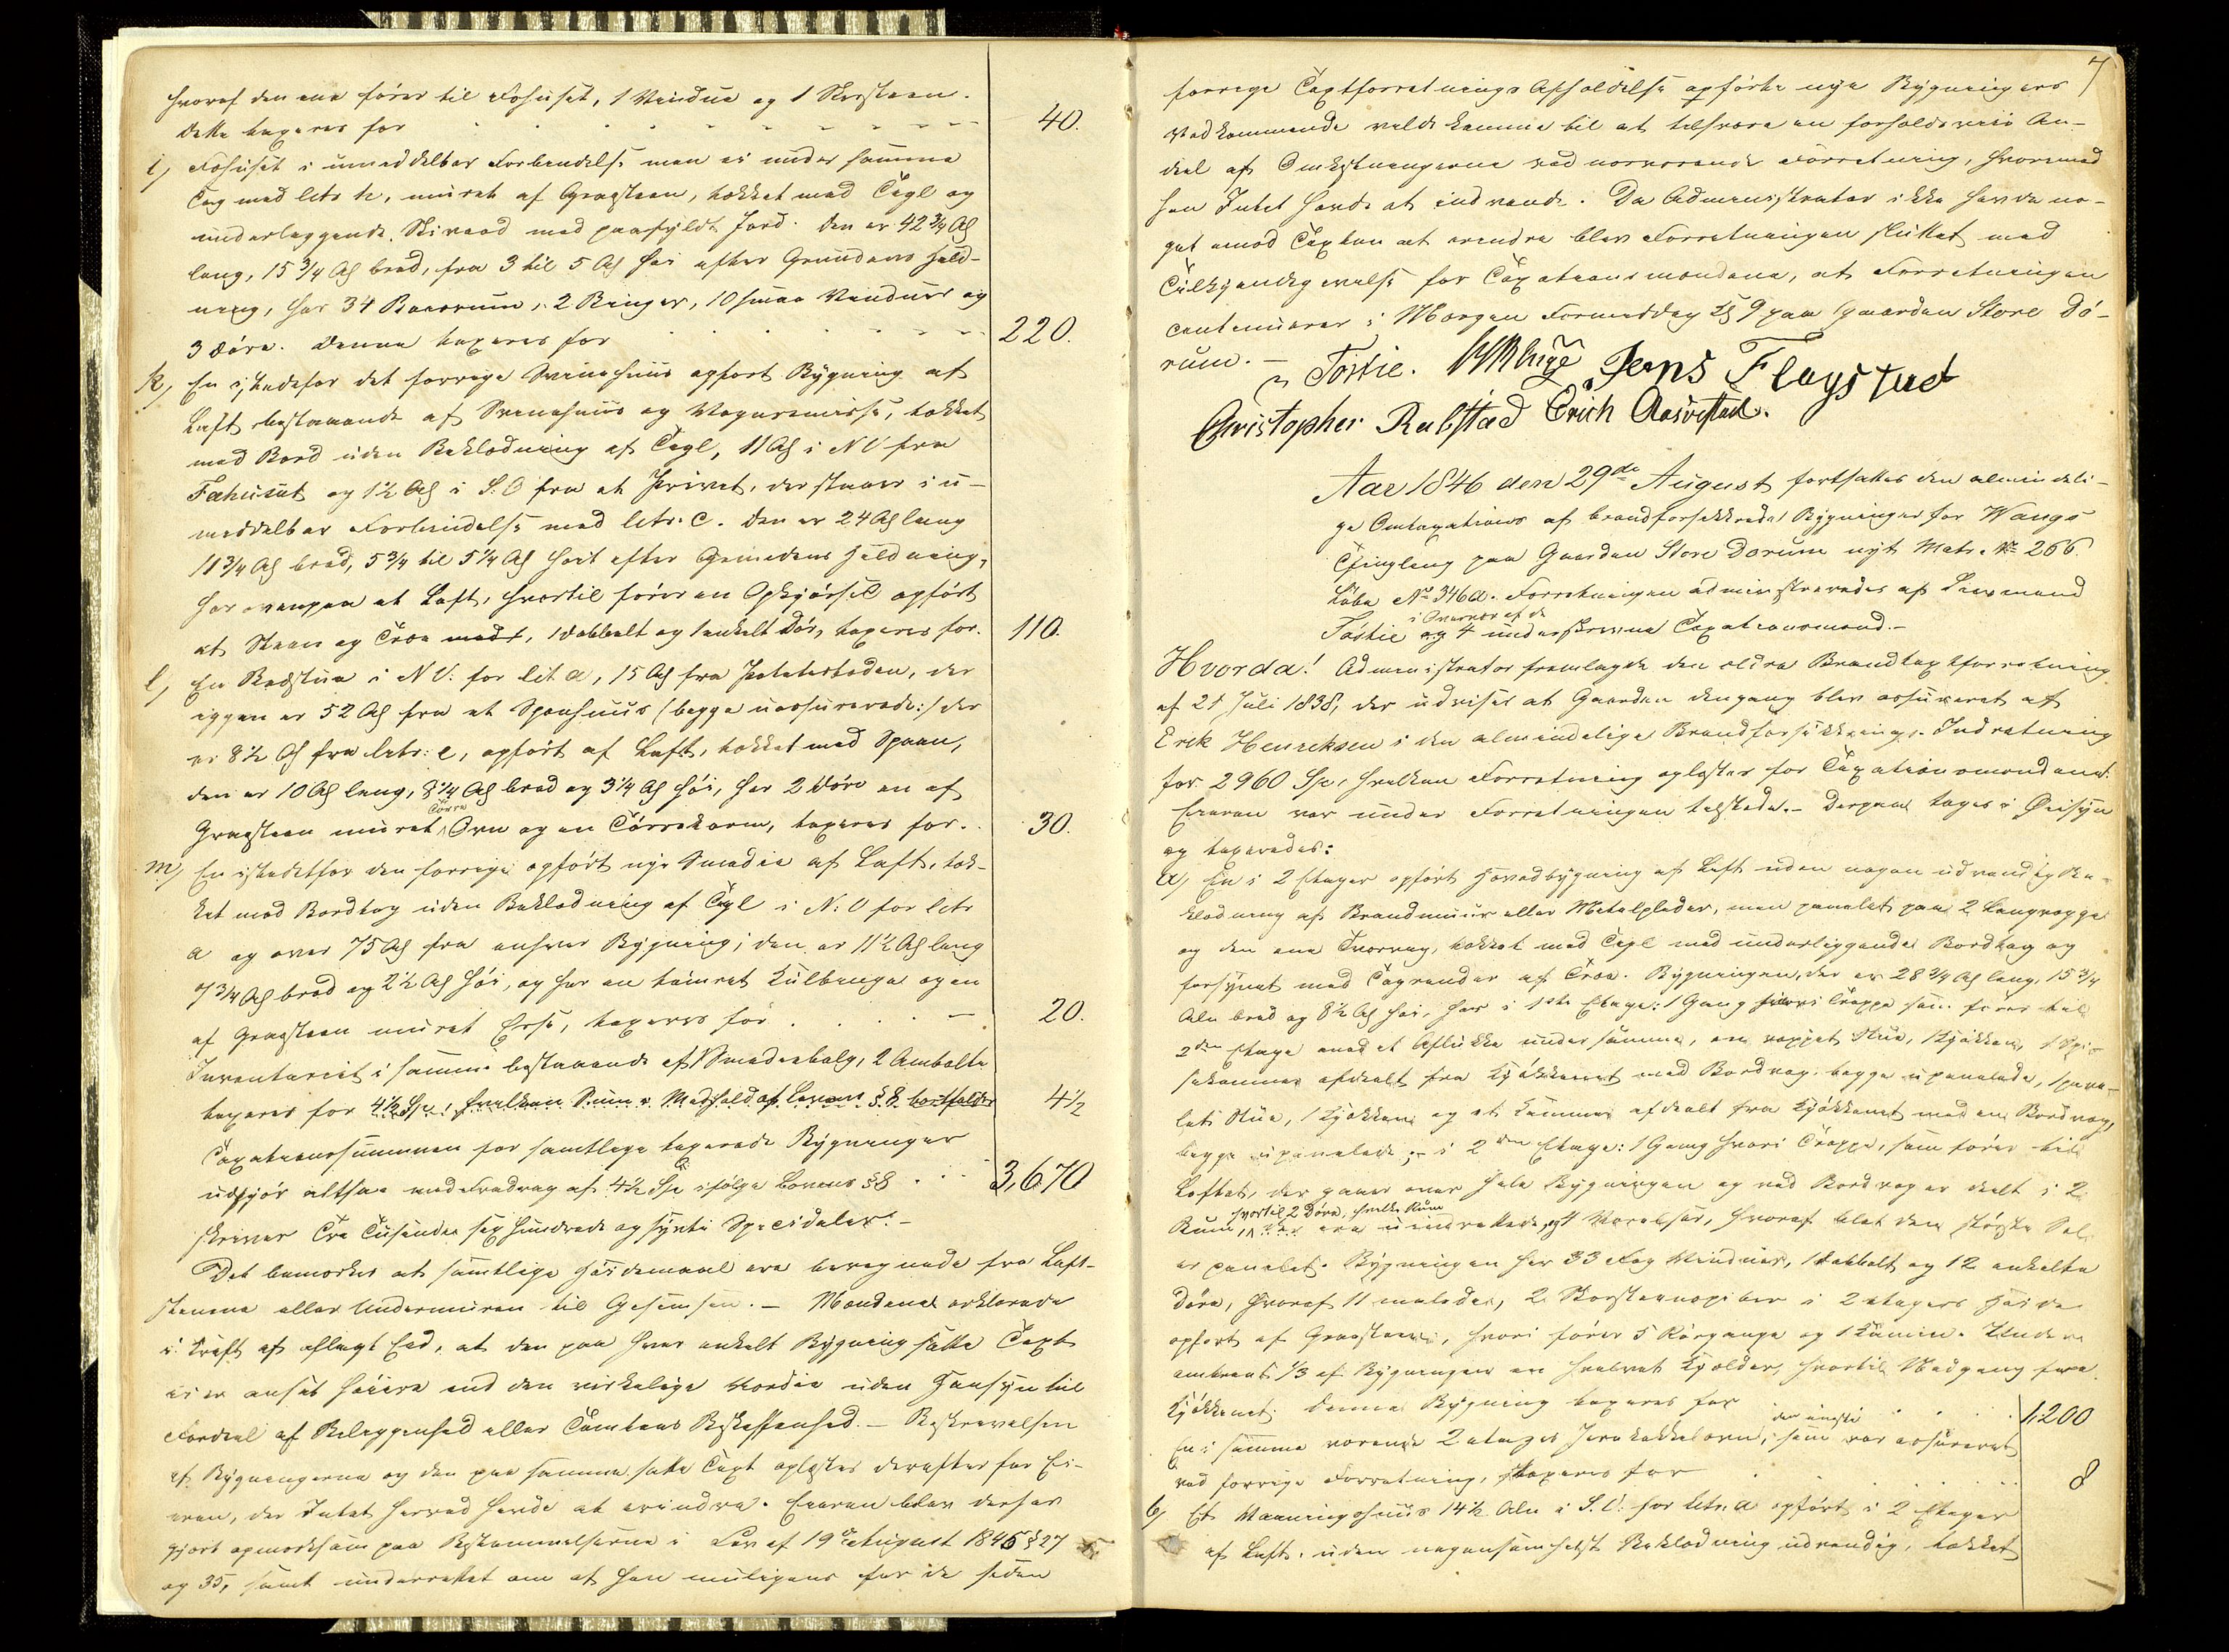 hvoraf den ene fører til Fæhuset, 1 Vindue og 1 Skorsteen.
Dette taxeres for 40.
i, Fæhuset i umiddelbar Forbindelse men ei under samme
Tag med litr. h, muret af Graasteen, tækket med Tegl og
underliggende Stivved med paafyldt Jord. Den er 42 3/4 Al
lang, 15 3/4 Al bred, fra 3 til 5 Al høi efter Grundens Held-
ning, har 34 Baaserum, 2 Binger, 10 smaa Vinduer og
3 Døre. Denne taxeres for 220.
k, En istedetfor det forrige Sviinehuus opført Bygning af
Laft, bestaaende af Sviinehuus og Vognremisse, tækket
med Bord uden Beklædning af Tegl, 11 Al i NV fra
Fæhuset og 1 1/2 Al i S.O fra et Privet, der staaer i u-
middelbar Forbindelse med litr. c. Den er 24 Al lang
11 3/4 Al bred, 5 3/4 til 5 1/4 Al høit efter Grundens Heldning,
har ovenpaa et Loft, hvortil fører en Opkjørsel opført
af Steen og Træe med, 1 dobbelt og 1 enkelt Dør, taxeres for. 110.
l, En Badstue i NV. for lit a, 15 Al fra Potetesboden, der
igjen er 52 Al fra et Sponhuus (begge uassurerede:/ der
er 8 1/2 Al fra litr: e, opført af Laft, tækket med Spaan,
den er 10 Al lang, 8 1/4 Al bred og 3 1/4 Al høi, har 2 Døre en af
Graasteen muret Ovn og en Tørrekarm, taxeres for. 30.
m, En istedetfor den forrige opført nye Smedie af Laft, tæk-
ket med Bordtag uden Beklædning af Tegl i N:O for litr
a og over 75 Al fra enhver Bygning; den er 11 1/2 Al lang
7 3/4 Al bred og 2 1/2 Al høi, og har en tømret Kulbinge og en
af Graasteen muret Esse, taxeres for 20.
Inventariet i samme bestaaende af 1 Smedebælg, 2 Ambolte
taxeres for 4 1/2 Spe, hvilken Sum i Medhold af Lovens § 8 bortfalder 4 1/2
Taxationssummen for samtlige taxerede Bygninger
udgjør altsaa med Fradrag af 4 1/2 Spe ifølge Lovens § 8 3,670
skriver Tre Tusinde sex hundrede og sytti Speciedaler.-
Det bemærkes at samtlige Høidemaal ere beregnede fra Laft-
stenene eller Undermuren til Gesimsen. - Mændene erklærede
i Kraft af aflagt Eed, at den paa hver enkelt Bygning satte Taxt
ei er ansat høiere end den virkelige Værdie uden Hensyn til
Fordeel af Beliggenhed eller Tomtens Beskaffenhed. - Beskrivelsen
af Bygningerne og den paa samme satte Taxt oplæstes derefter for Ei-
eren, der Intet herved havde at erindre. Eieren blev derhos
gjort opmærksom paa Bestemmelserne i Lov af 19de August 1845 § 27
og 35, samt underrettet om at han muligens for de siden
7
forrige Taxtforretnings Afholdelse opførte nye Bygningers
Vedkommende vilde komme til at tilsvare en forholdsviis An-
deel af Omkostningerne ved nærværende Forretning, hvorimod
han Intet havde at indvende. Da Administrator ikke havde no-
get imod Taxten at erindre blev Forretningen sluttet med
Tilkjendegivelse for Taxationsmændene, at Forretningen
continuerer i Morgen Formiddag Kl 9 paa Gaarden Store Dø-
rum. - Tostie. Jens Flagstad
Christopher Rabstad Erich Aasvestad.
Aar 1846 den 29de August fortsattes den almindeli-
ge Omtaxation af brandforsikkrede Bygninger for Wangs
Thinglaug paa Gaarden Store Dørum nyt Matr. No 266
Løbe No 346a. Forretningen administreredes af Lensmand
i Overvær af de
Tostie og 4 underskrevne Taxationsmænd. -
Hvorda! Administrator fremlagde den ældre Brandtaxtforretning
af 21 Juli 1838, der udviser at Gaarden dengang blev assureret af
Erik Henriksen i den almindelige Brandforsikkrings-Indretning
for 2960 Spe, hvilken Forretning oplæstes for Taxationsmændene.
Eieren var under Forretningen tilstede. - Derpaa toges i Øiesyn
og taxeredes:
a, En i 2 Etager opført Hovedbygning af Laft uden nogen udvendig Be-
klædning af Brandmuur eller Metalplader, men panelet paa 2 Langvægge
og den ene Tværvæg, tækket med Tegl med underliggende Bordtag og
forsynet med Tagrender af Træe. Bygningen, der er 28 3/4 Al lang, 15 3/4
Aln bred og 8 1/2 Al høi, har i 1ste Etage: 1 Gang hvori Trappe som fører til
2den Etage med et Aflukke under samme, en Stue, 1 Kjøkken, 1 Spi-
sekammer afdeelt fra Kjøkkenet med Bordvæg begge upanelede, 1 pane-
let Stue, 1 Kjøkken og et Kammer afdeelt fra Kjøkkenet med en Bordvæg,
begge upanelede; - i 2den Etage: 1 Gang hvori Trappe, som fører til
Loftet, der gaaer over hele Bygningen og ved Bordvæg er deelt i 2
hvortil 2 Døre, hvilke Rum
Rum, ere uindredede, og 4 Værelser, hvoraf blot den største Sal
er panelet. Bygningen har 33 Fag Vinduer, 1 dobbelt og 12 enkelte
Døre, hvoraf 11 malede, 2 Skorsteenspiber i 2 etagers Høide
opført af Graasteen, hvori fører 5 Rørgange og 1 Kamin. Under
omtrent 1/3 af Bygningen en hvælvet Kjelder, hvortil Nedgang fra
Kjøkkenet. Denne Bygning taxeres for 1,200
En i samme værende 2 etages Jernkakkelovn, som var assureret
ved forrige Forretning, taxeres for 8
b, Et Vaaningshuus 14 1/2 Aln i S.V. for litr. a opført i 2 Etager
af Laft, uden nogensomhelst Beklædning udvendig, tækket